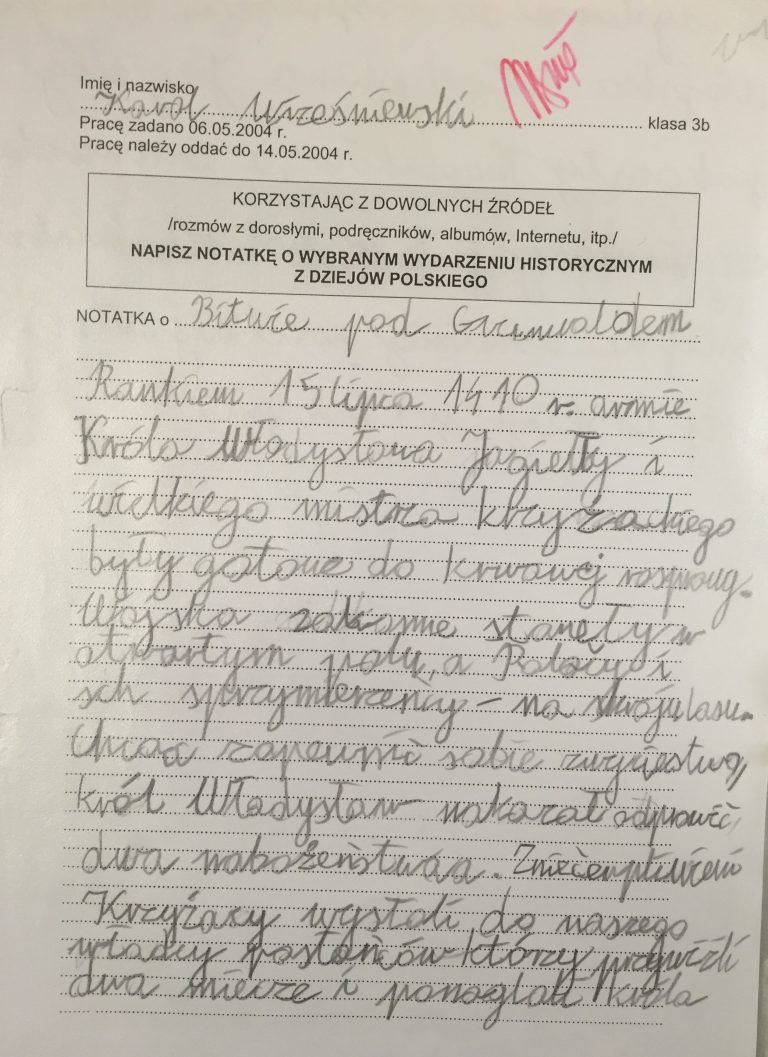 Imię i nazwisko
Karol Wrześniewski klasa 3b
Pracę zadano 06.05.2004 r.
Pracę należy oddać do 14.05.2004 r.
KORZYSTAJĄC Z DOWOLNYCH ŹRÓDEŁ
/rozmów z dorosłymi, podręczników, albumów, Internetu, itp./
NAPISZ NOTATKĘ O WYBRANYM WYDARZENIU HISTORYCZNYM
Z DZIEJÓW POLSKIEGO
NOTATKA o Bitwie pod Grunwaldem
Rankiem 15 lipca 1410 r. armie
Króla Władysława Jagiełły i
wielkiego mistrza krzyżackiego
były gotowe do krwawej rozprawy.
Wojska zakonne stanęły w
otwartym polu, a Polacy i
ich sprzymierzeńcy – na skraju lasu.
Chcąc zapewnić sobie zwycięstwo,
król Władysław nakazał odprawić
dwa nabożeństwa. Zniecierpliwieni
Krzyżacy wysłali do naszego
władcy posłańców którzy przywieźli
dwa miecze i ponaglali króla